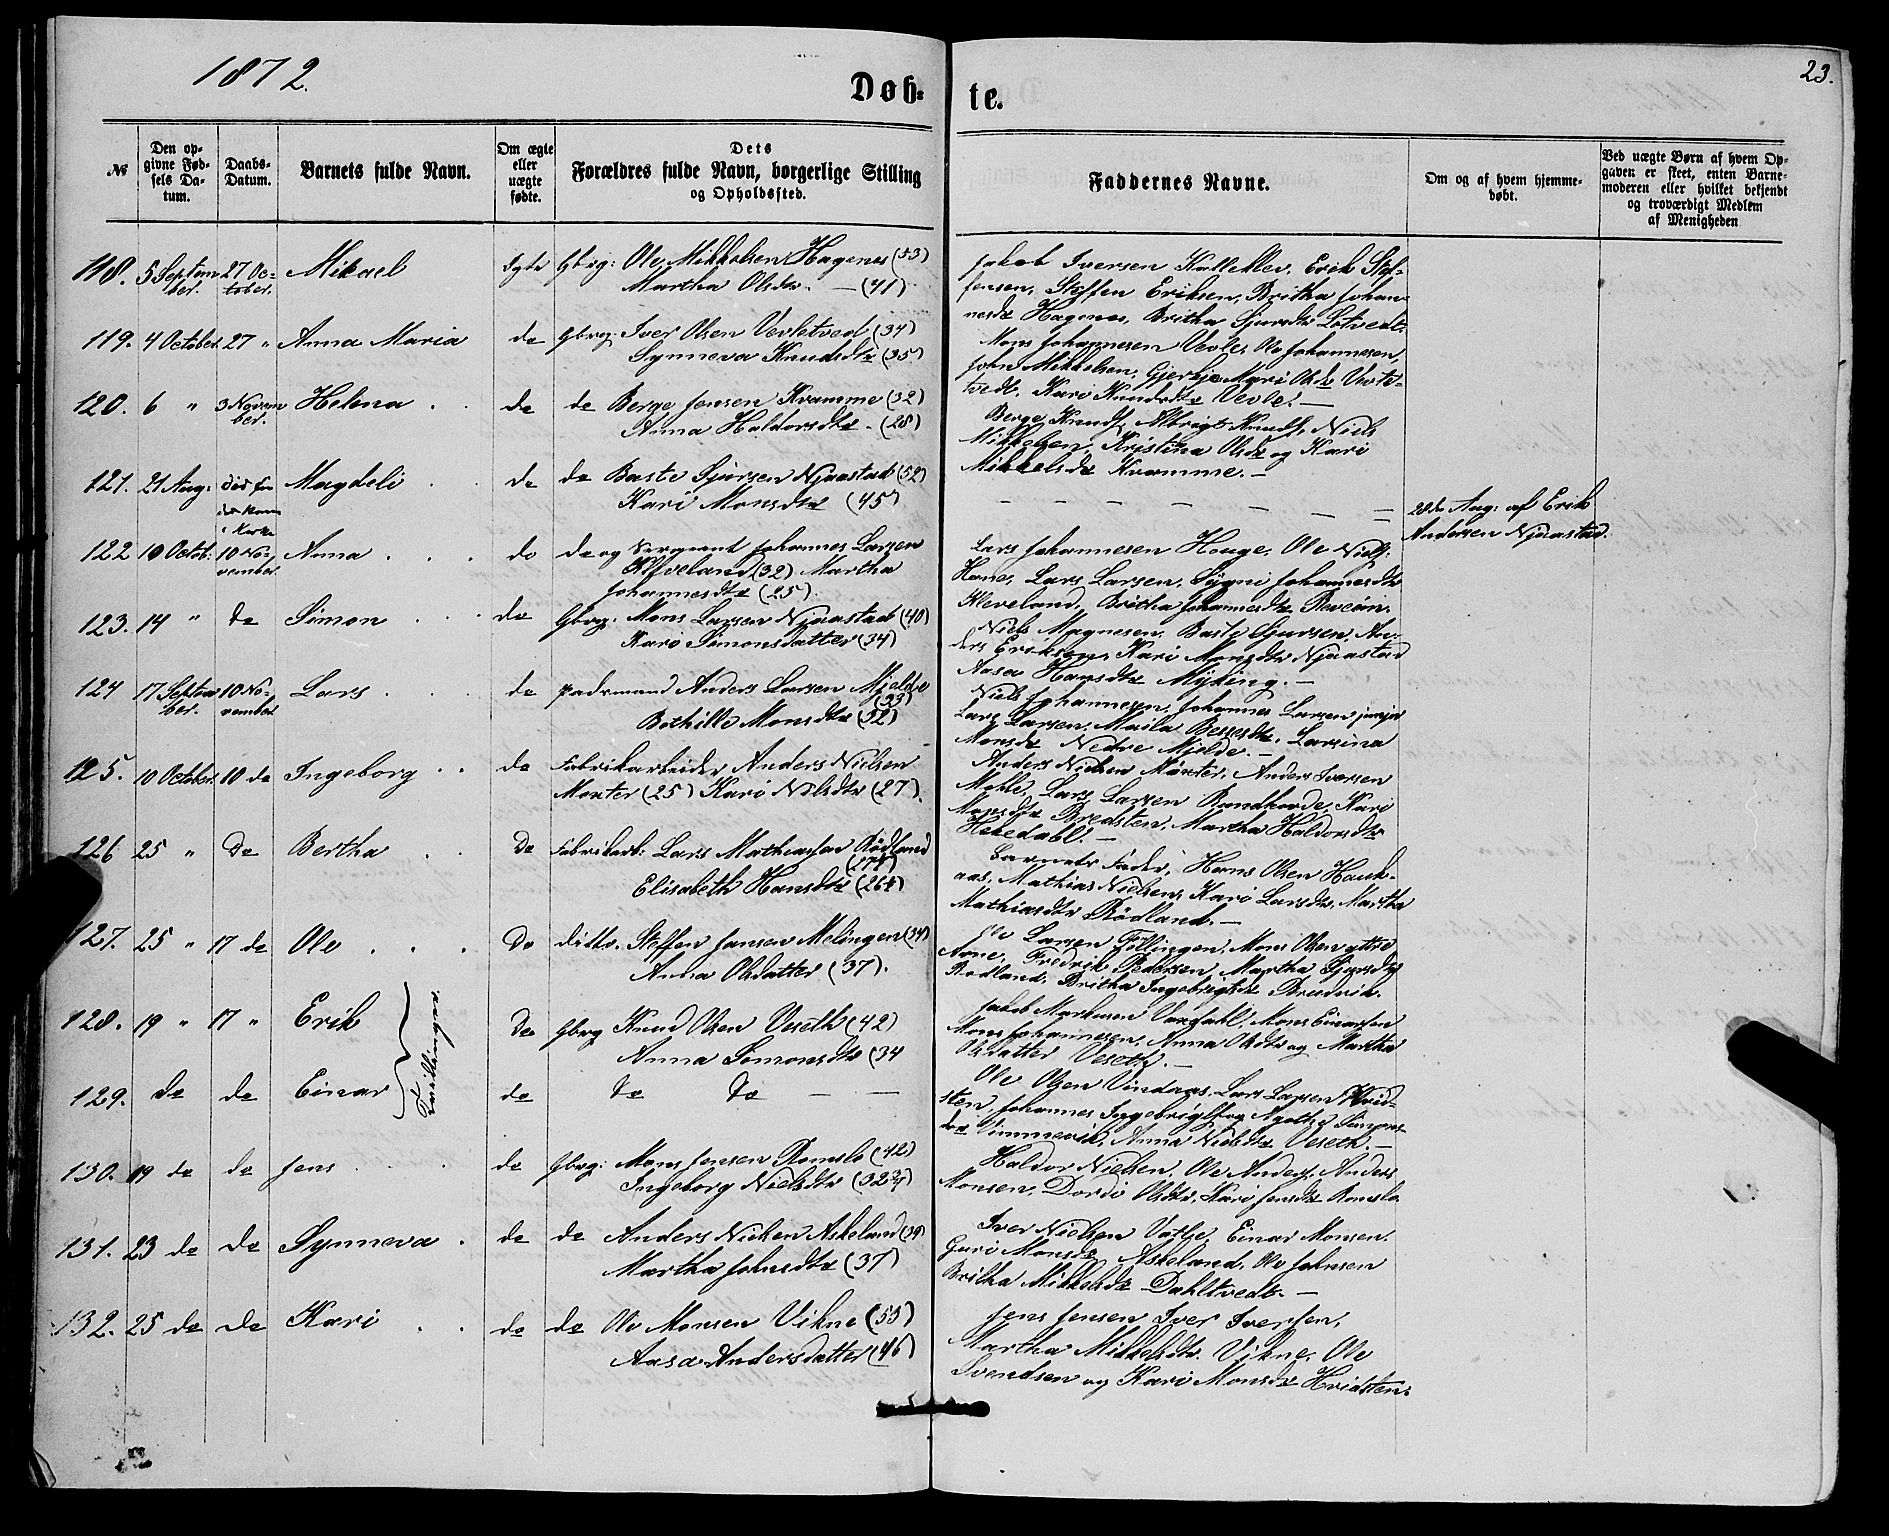 1872.
23.
Døb-
te.
№
Den op-
givne Fød-
sels Da-
tum.
Daabs-
Datum.
Barnets fulde Navn.
Om ægte
eller
uægte
fødte.
Dets
Forældres fulde Navn, borgerlige Stilling
og Opholdssted.
Faddernes Navne.
Om og af hvem hjemme-
døbt.
Ved uægte Børn af hvem Op-
gaven er skeet, enten Barne-
moderen eller hvilket bekjendt
og troværdigt Medlem
af Menigheden
118. 5 Septem- 27 Oc- Mikael
ber. tober.
Ægte Gbrg: Ole Mikkelsen Hagenes (53)
Martha Olsdtr. — (41)
Jakob Iversen Kalleklev, Erik Stef-
fensen, Steffen Eriksen, Britha Johan-
nesdtr Hagenes, Britha Sjursdtr Lotvedt.
119. 4 October 27 " Anna Maria
de Gbrg Iver Olsen Vevletved (34)
Synneva Knudsdtr (35)
Mons Johannesen Vevle, Ole Johannesen,
John Mikkelsen, Gjertje Mari Olsdtr
tvedt, Kari Knudsdtr Vevle. —
120. 6 " 3 Novem Helena . .
ber.
de de Berge Jensen Kvamme (32)
Anna Haldorsdtr. (28)
Berge Knuds, Albrigt Knuds, Niels
Mikkelsen, Kristina Olsdtr og Kari
Mikkelsdtr Kvamme. —
121. 21 Aug: død før Magdeli . .
det kom
i Kirke
de de Baste Sjursen Njaastad (52)
Kari Monsdtr (45)
— — — — — —
28de Aug: af Erik
Andersen Njaastad.
122 10 Octob: 10 No- Anna . . .
vember
de de og Sergeant Johannes Larsen
Kleveland (32) Martha
Johannesdtr (25).
Lars Johannesen Houge, Ole Niels.
Hane, Lars Larsen, Sygni Johannesdtr
Kleveland, Britha Johannesdtr
123. 14 " de Simon . . .
de Gbrg: Mons Larsen Njaastad (40)
Kari Simonsdatter (34)
Niels Magnesen, Baste Sjursen, An-
ders Eriksen, Kari Monsdtr Njaastad
Aasa Hansdtr Myking. —
124 17 Septem 10 No- Lars . . .
ber. vember
de Anders Larsen Mjelde
(33)
Bothilde Monsdtr (32)
Niels Johannesen, Johannes Larsen junjor
Lars Larsen, Maila Bessesdtr, Larsina
Monsdtr Nedre Mjelde. —
125. 10 October 10 de Ingeborg . .
de Fabrikarbeider Anders Nielsen
Monter (25) Kari Nilsdtr (27).
Anders Nielsen Monter, Anders Iversen
Mohle, Lars Larsen Randhovde, Kari
Monsdtr Bredsten, Martha Haldorsdtr
126 25 " de Bertha . .
de Fabrikarb: Lars Mathiassen Rødland
Elisabeth Hansdtr (26
Barnets Fader, Hans Olsen Hauk-
aas, Mathias Nielsen, Kari Larsdtr, Martha
Mathiasdtr Rødland. —
127. 25 " 17 de Ole . . .
de ditto. Steffen Jansen Melingen (34)
Anna Olsdatter (37).
Ole Larsen Føllingen, Mons Olsen ytre
Arne, Fredrik Pedersen, Martha Sjursdtr
Rødland, Britha Ingebrigtsdtr Brudvik.
128. 19 " 17 " Erik
Tvillinger.
de Gbrg Knud Olsen Veseth (42)
Anna Simonsdtr (34
Jakob Markusen Vaxdahl, Mons Einarsen
Mons Johannesen, Anna Olsdtr og Martha
Olsdatter Veseth. —
129. de de Einar
de de de — —
Ole Olsen Vindaas, Lars Larsen Hvid-
sten, Johannes Ingebrigts og Agatha Simons-
dtr Vimmervik, Anna Nielsdtr Veseth. —
130. 19 de de Jens . . .
de Gbrg: Mons Jensen Romslo (42)
Ingeborg Nielsdtr (32¾)
Haldor Nielsen, Ole Anders, Anders
Monsen, Dordi Olsdtr, Kari Jensdtr Romslo
131. 23 de de Synneva .
de de Anders Nielsen Askeland (39)
Martha Johnsdtr (37)
Iver Nielsen Vatle, Einar Monsen.
Guri Monsdtr Askeland, Ole Johnsen
Britha Mikkelsdtr Dahltvedt. —
132. 25 de de Kari . .
de de Ole Monsen Vikne (55)
Aasa Andersdatter (46)
Jens Jensen Iver Iversen,
Martha Mikkelsdtr. Vikne, Ole
Svendsen og Kari Monsdtr Hvidsten.